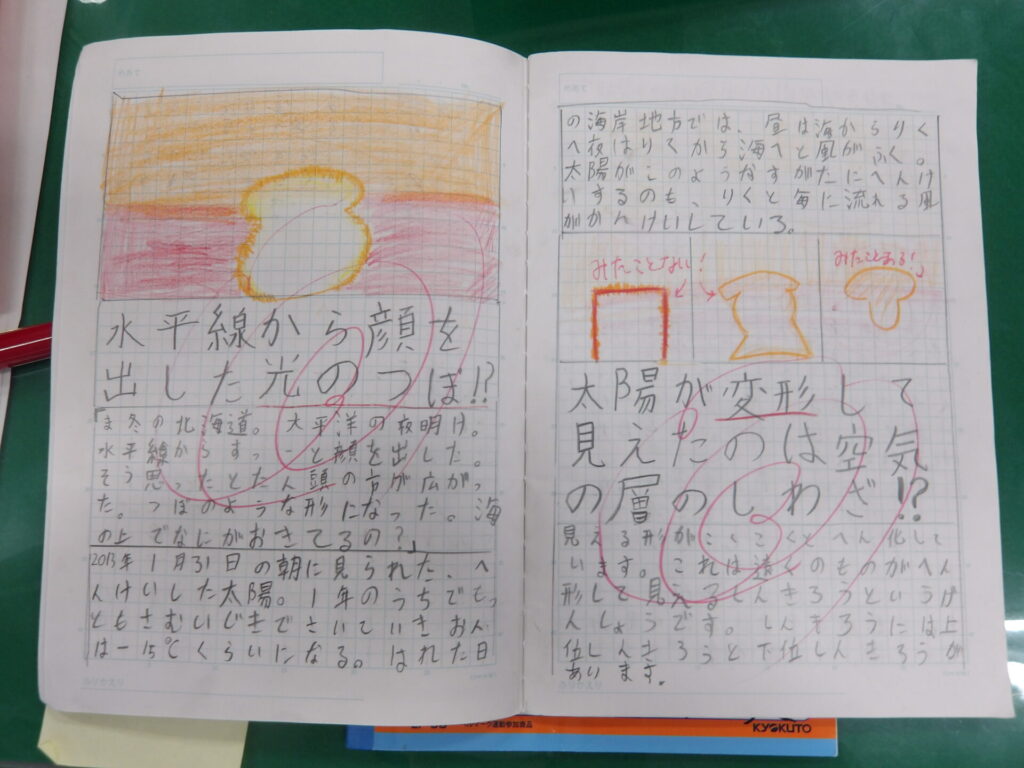 水平線から顔を
出した光のつぼ!?
「ま冬の北海道。大平洋の夜明け。
水平線からすーっと顔を出した。
そう思ったとたん頭の方が広がっ
た。つぼのような形になった。海
の上でなにがおきてるの?」
2013年1月31日の朝に見られた、へ
んけいした太陽。1年のうちでもっ
ともさむいじきでさいていきおん
は-15℃くらいになる。はれた日
の海岸地方では、昼は海からりく
へ夜はりくから海へと風がふく。
太陽がこのようなすがたにへんけ
いするのも、りくと海に流れる風
がかんけいしている。
みたことない!
みたことある!
太陽が変形して
見えたのは空気
の層のしわざ!?
見える形がこくこくとへん化して
います。これは遠くのものがへん
形して見えるしんきろうというげ
んしょうです。しんきろうには上
位しんきろうと下位しんきろうが
あります。
KYOKUTO